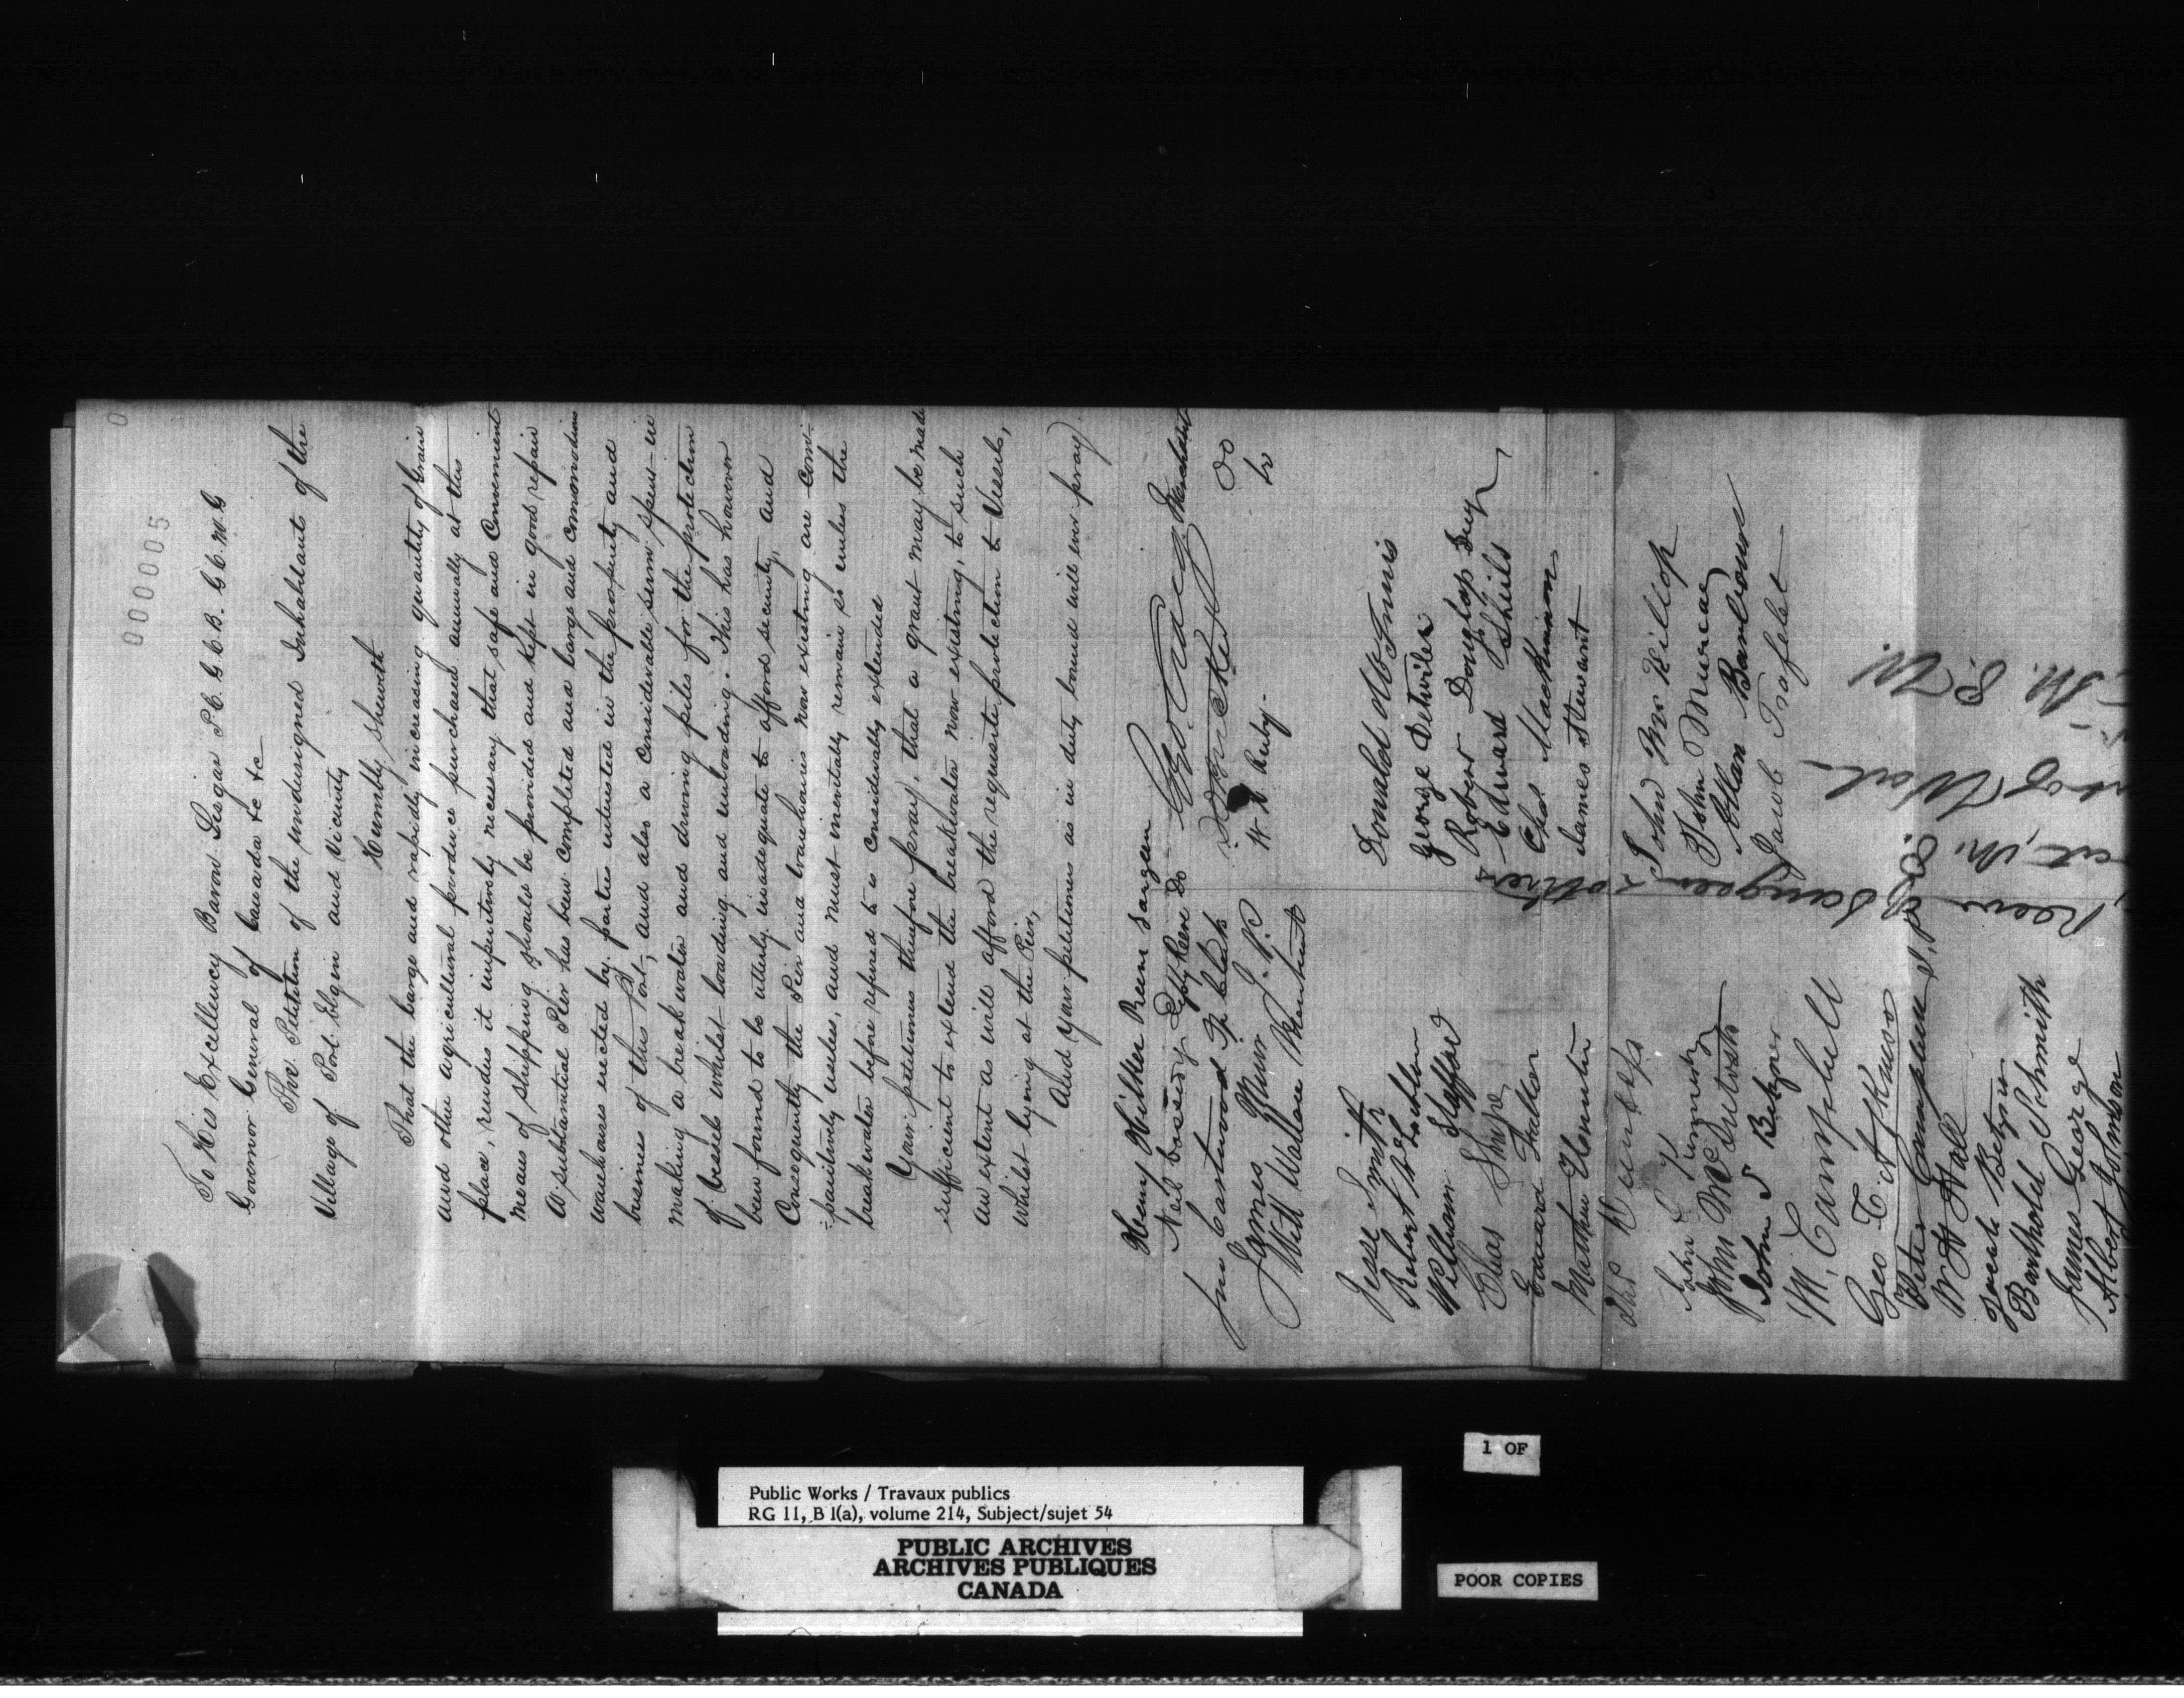 000005
To His Excellency Baron Lisgar P.C. G.C.B. G.C.M.G
Governor General of Canada &c &c
The Petition of the undersigned Inhabitants of the
Village of Port Elgin and Vicinity
Humbly Sheweth
That the large and rapidly increasing quantity of Grain
and other agricultural produce purchased annually at this
place, renders it imperitively necessary that safe and Convenient
means of shipping should be provided and kept in good repair
A substantial Pier has been completed and large and commodious
warehouses erected by parties interested in the prosperity and
business of this Port, and also a considerable sum spent in
making a breakwater and driving piles for the protection
of vessels whilst loading and unloading. This has however
been found to be utterly inadequate to afford security, and
Consequently the Pier and warehouses now existing are com-
:paritively useless, and must inevitably remain so unless the
breakwater before referred to is considerably extended
Your petitioners therefore pray, that a grant may be made
sufficient to extend the breakwater now existing, to such
an extent as will afford the requisite protection to Vessels,
whilst lying at the Pier,
And your petitioners as in duty bound will ever pray.
Henry Hilker Reeve Saugeen
Neil Do
Jno Eastwood Tp Clerk
James Munro J.P.
Will Wallace Merchant
Geo. Merchant
Do
H Ruby
Jesse Smith
Robert
William Stafford
Elias
Edward Fallor
Matthew
Donald McInnis
George Detwiler
Robert Douglas
Edward Shiels
Chas Mackinnon
James Stewart
John Kennedy
John McIntosh
John S
M. Campbell
Geo T.
Peter Campbell
W H Hall
Barthold Schmith
James George
Albert Johnson
John McKillop
John Murray
Allan
Jacob
Reeve of Saugeen & others